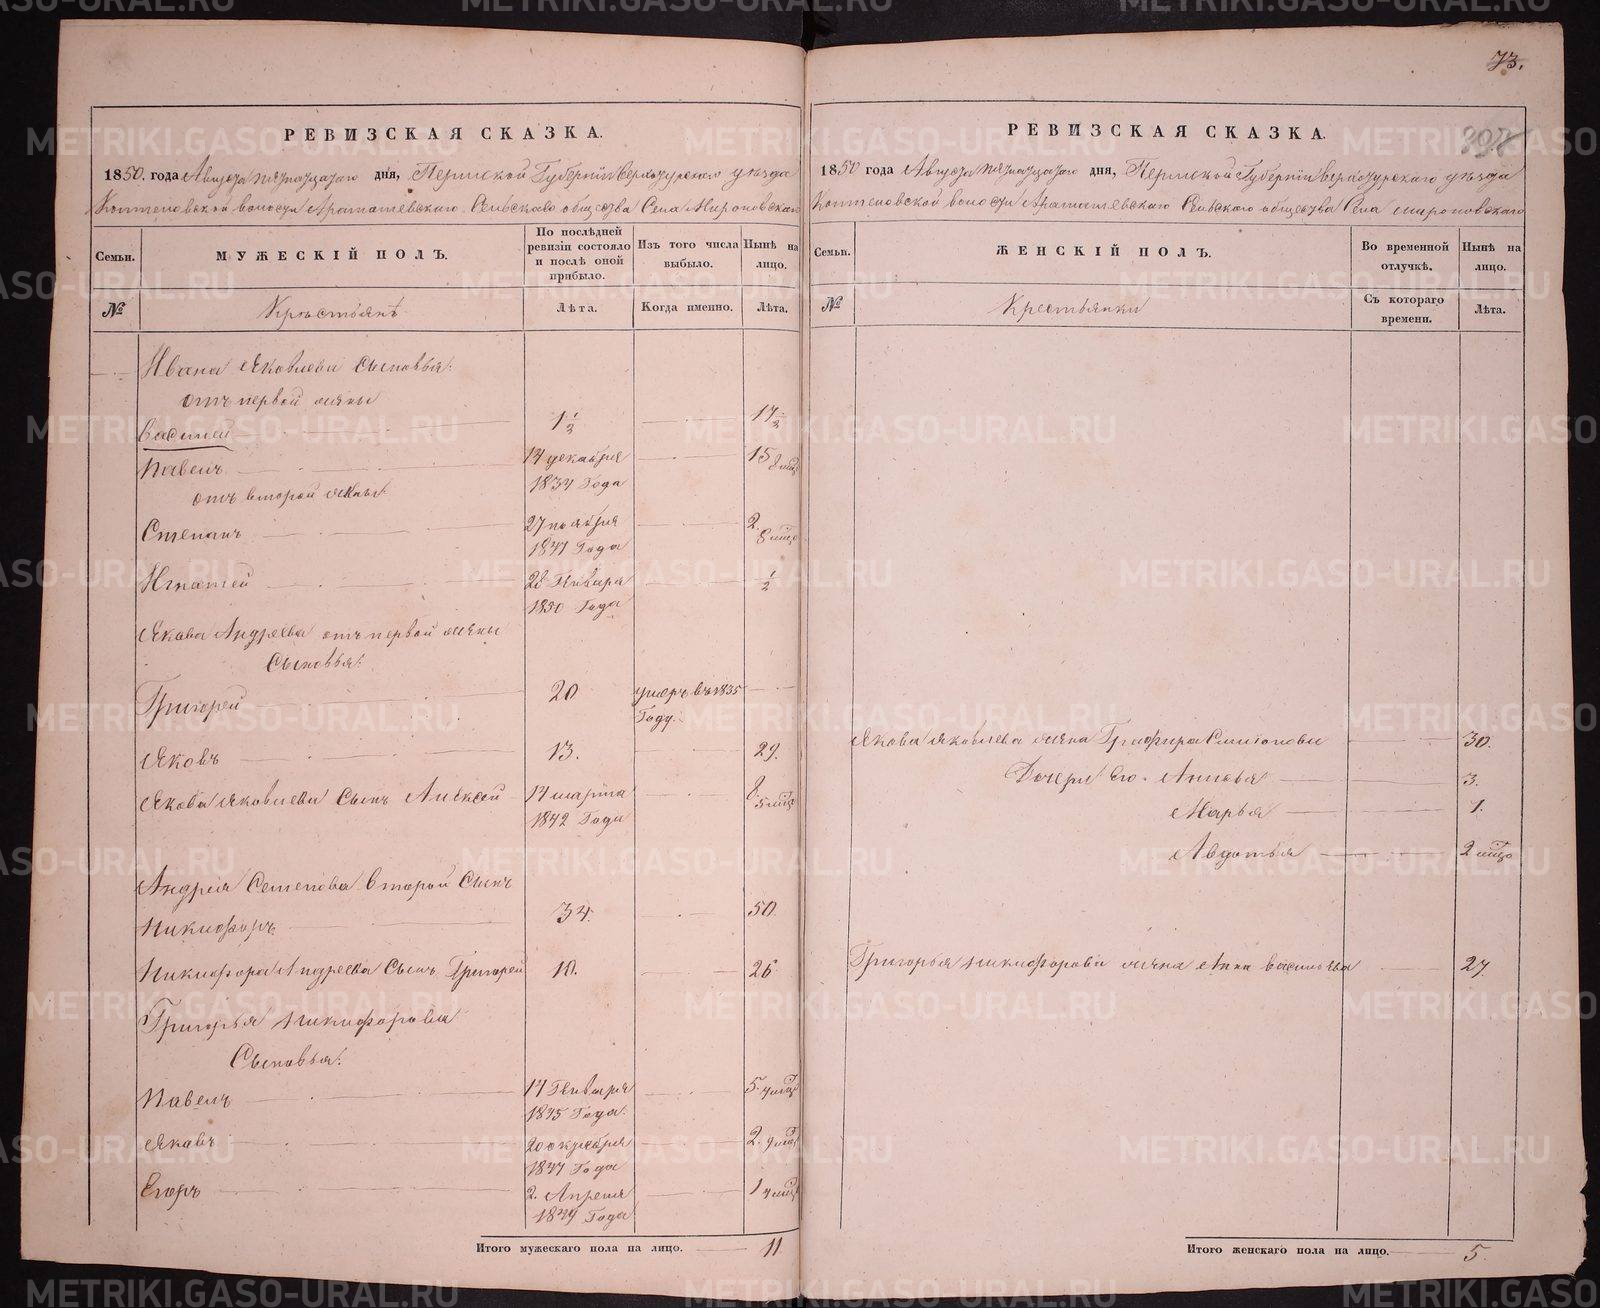 РЕВИЗСКАЯ СКАЗКА.
1850. года Августа пятнадцатаго дня, Пермской Губернiи Верхотурскаго уѣзда
Коптеловской волости Арамашевскаго Сельскаго общества Села Мироновскаго
Семьи.
МУЖЕСКIЙ ПОЛЪ.
По послѣдней ревизiи состояло и послѣ оной прибыло.
Изъ того числа выбыло.
Нынѣ на лицо.
№
Крестьянъ
Лѣта.
Когда именно.
Лѣта.
Ивана Яковлева Сыновья:
отъ первой жены
Василей 1 1/2 17 1/2
Павелъ 14 декабря 1834 Года 15 8 мцъ
отъ второй жены
Степанъ 27 ноября 1847 Года 2. 8 мцъ
Игнатей 28 Января 1850 Года 1/2
Якова Андреева отъ первой жены
Сыновья:
Григорей 20 умеръ въ 1835 Году.
Яковъ 13. 29.
Якова Яковлева Сынъ Алексей 14 марта 1842 Года 8. 5 мцъ
Андрея Семенова второй Сынъ
Никифоръ 34. 50.
Никифора Андреева Сынъ Григорей 10. 26
Григорья Никифорова
Сыновья:
Павелъ 14 Января 1845 Года. 5. 7 мцъ
Яковъ 20 октября 1847 Года 2. 9 мцъ
Егоръ 2. Апреля 1849 Года 1 4 мцъ
Итого мужескаго пола на лицо. 11
73.
РЕВИЗСКАЯ СКАЗКА.
1850 года Августа пятнадцатаго дня, Пермской Губернiи Верхотурскаго уѣзда
Коптеловской волости Арамашевскаго Сельскаго общества Села Мироновскаго
Семьи.
ЖЕНСКIЙ ПОЛЪ.
Во временной отлучкѣ.
Нынѣ на лицо.
№
Крестьянки
Съ котораго времени.
Лѣта.
Якова Яковлева жена Графира 30.
Дочери Его. 3.
Марья 1.
Авдотья 2 мцъ
Григорья Никифорова жена Анна Васильева 27
Итого женскаго пола на лицо. 5.
METRIKI.GASO-URAL.RU